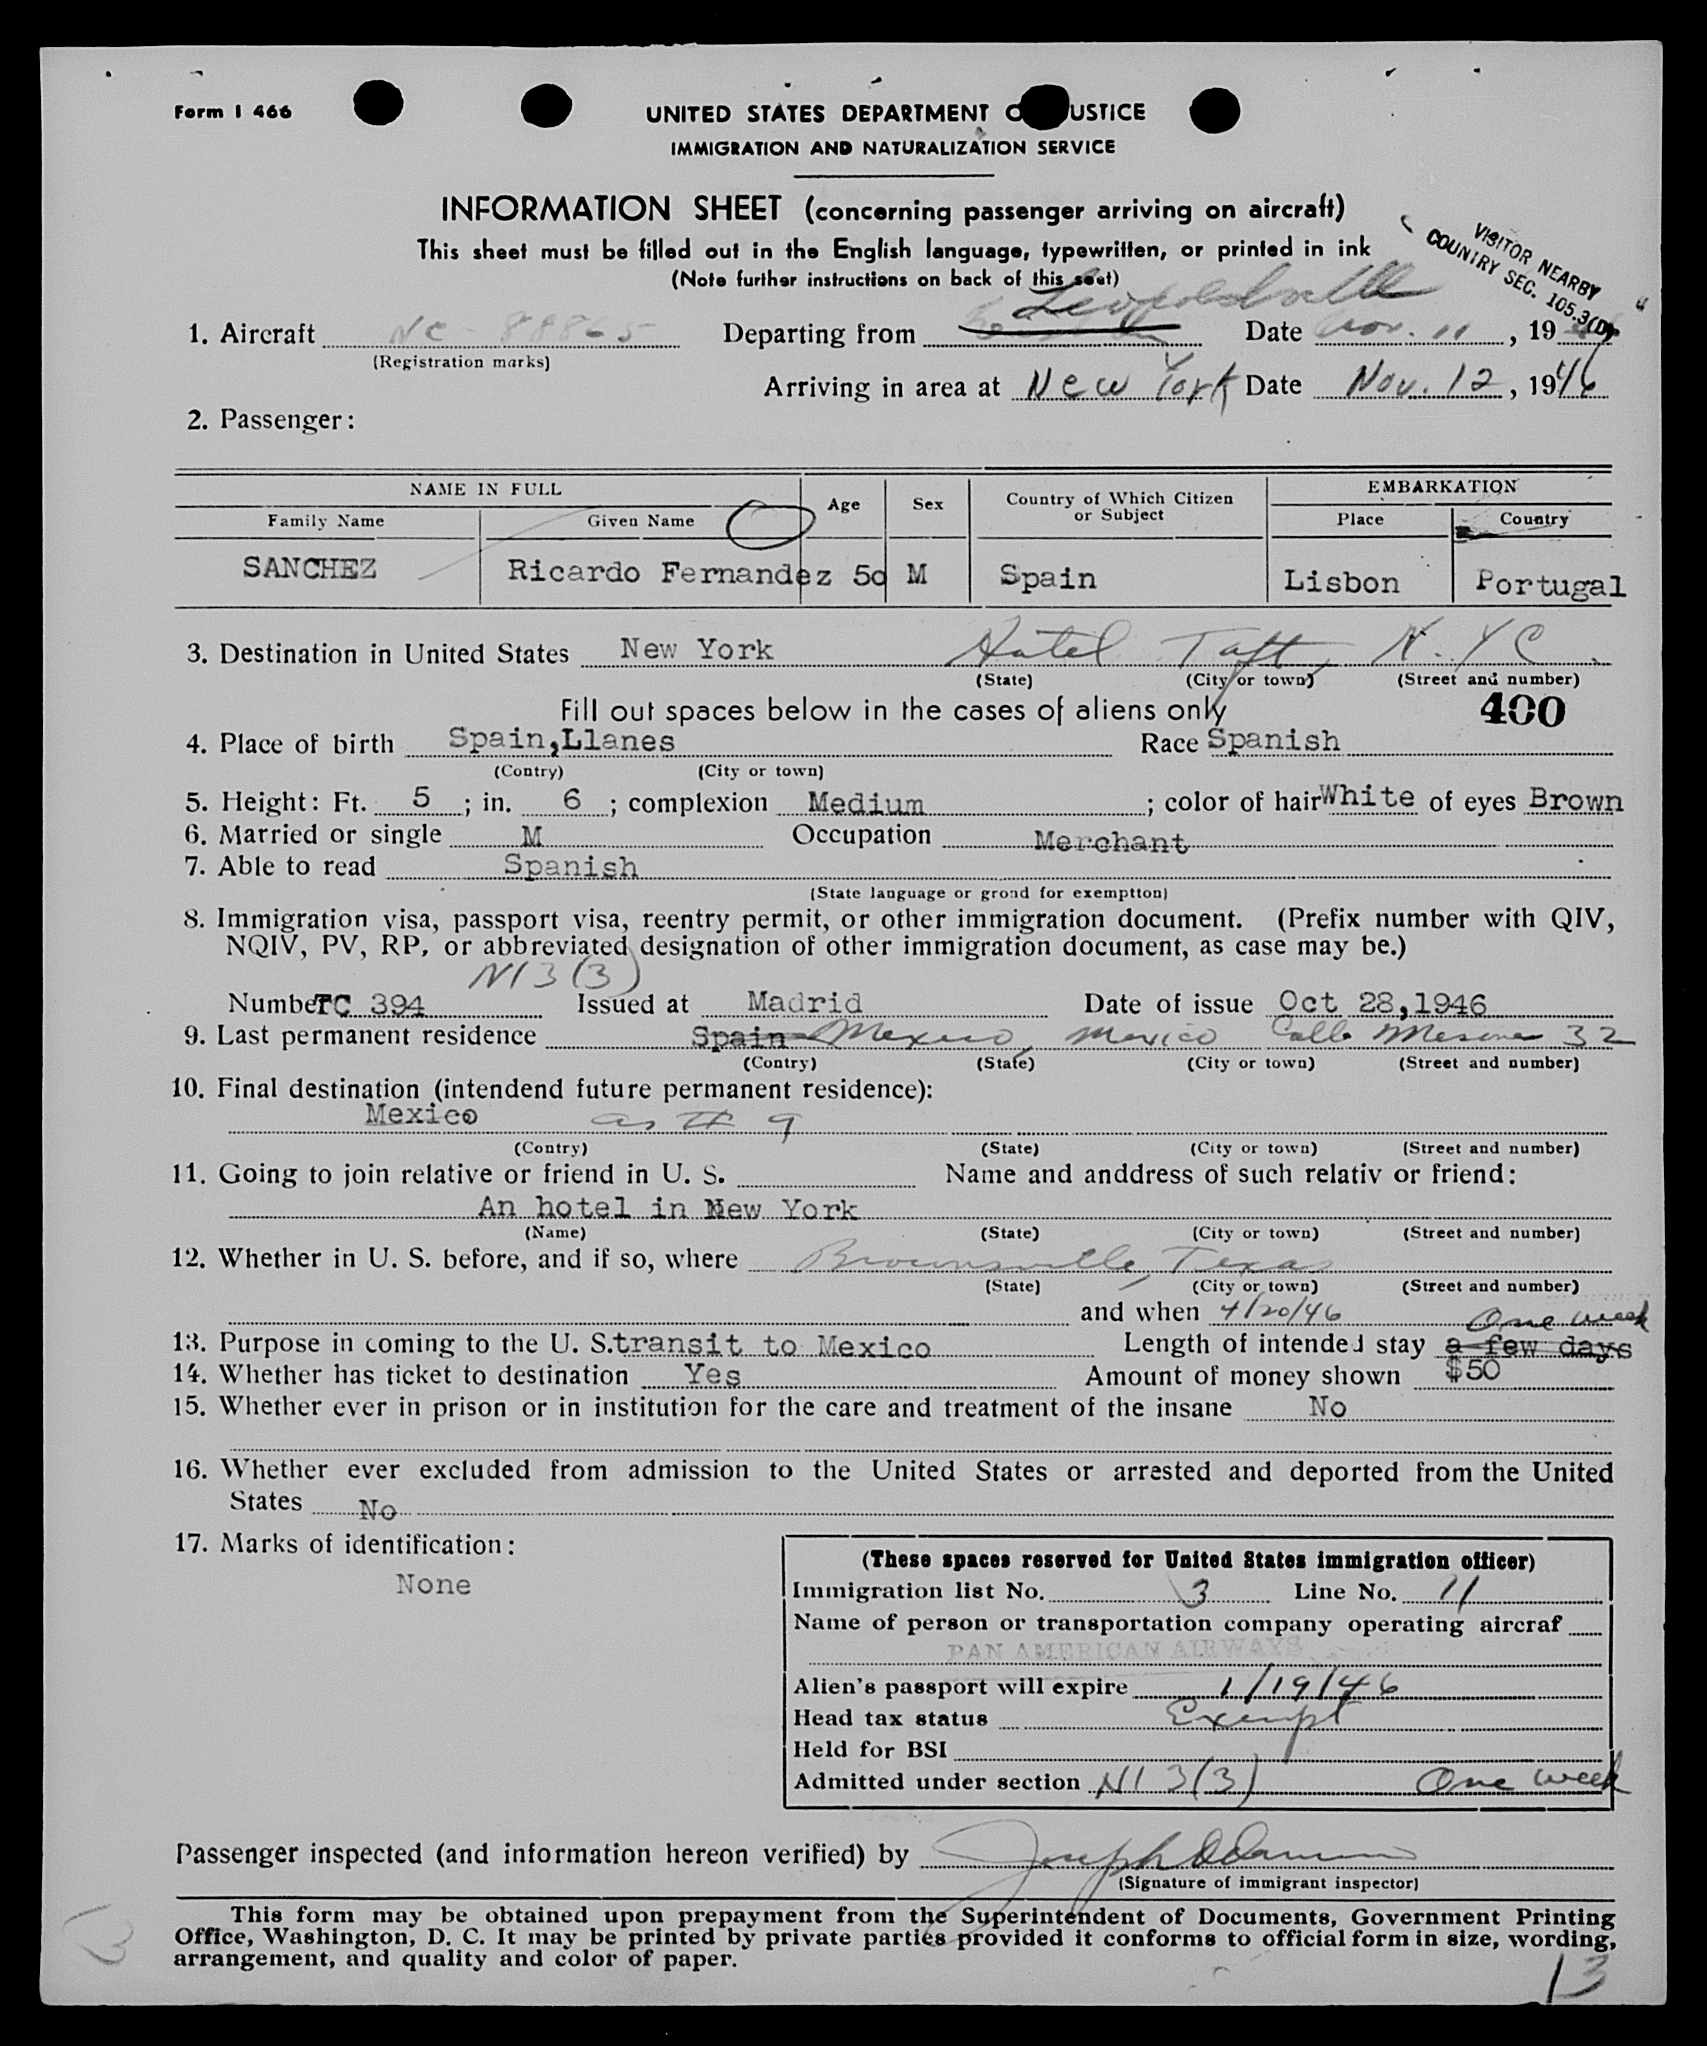 Form I 466
UNITED STATES DEPARTMENT O USTICE
IMMIGRATION AND NATURALIZATION SERVICE
INFORMATION SHEET (concerning passenger arriving on aircraft)
This sheet must be filled out in the English language, typewritten, or printed in ink
(Note further instructions on back of this seet)
VISITOR NEARBY
COUNTRY SEC. 105.3(D)
Leopoldville
1. Aircraft NC - 88865 Departing from Date Nov. 11, 19
(Registration marks)
Arriving in area at New York Date Nov. 12, 1946
2. Passenger:
NAME IN FULL Age Sex Country of Which Citizen or Subject EMBARKATION
Family Name Given Name Place Country
SANCHEZ Ricardo Fernandez 50 M Spain Lisbon Portugal
3. Destination in United States New York Hotel Taft, N.Y C.
(State) (City or town) (Street and number)
Fill out spaces below in the cases of aliens only 400
4. Place of birth Spain,Llanes Race Spanish
(Contry) (City or town)
5. Height: Ft. 5 ; in. 6 ; complexion Medium ; color of hair White of eyes Brown
6. Married or single M Occupation Merchant
7. Able to read Spanish
(State language or grond for exemptton)
8. Immigration visa, passport visa, reentry permit, or other immigration document. (Prefix number with QIV,
NQIV, PV, RP, or abbreviated designation of other immigration document, as case may be.)
N13(3)
Number TC 394 Issued at Madrid Date of issue Oct 28,1946
9. Last permanent residence Spain Mexico, Mexico Calle 32
(Contry) (State) (City or town) (Street and number)
10. Final destination (intendend future permanent residence):
Mexico as # 9
(Contry) (State) (City or town) (Street and number)
11. Going to join relative or friend in U. S. Name and anddress of such relativ or friend:
An hotel in New York
(Name) (State) (City or town) (Street and number)
12. Whether in U. S. before, and if so, where Brownsville, Texas
(State) (City or town) (Street and number)
and when 4/20/46 One week
13. Purpose in coming to the U. S. transit to Mexico Length of intended stay a few days
14. Whether has ticket to destination Yes Amount of money shown $50
15. Whether ever in prison or in institution for the care and treatment of the insane No
16. Whether ever excluded from admission to the United States or arrested and deported from the United
States No
17. Marks of identification:
None
(These spaces reserved for United States immigration officer)
Immigration list No. 3 Line No. 11
Name of person or transportation company operating aircraf
PAN AMERICAN AIRWAYS
Alien's passport will expire 1/19/46
Head tax status Exempt
Held for BSI
Admitted under section N1 3(3) One week
Passenger inspected (and information hereon verified) by
(Signature of immigrant inspector)
This form may be obtained upon prepayment from the Superintendent of Documents, Government Printing
Office, Washington, D. C. It may be printed by private parties provided it conforms to official form in size, wording,
arrangement, and quality and color of paper.
13